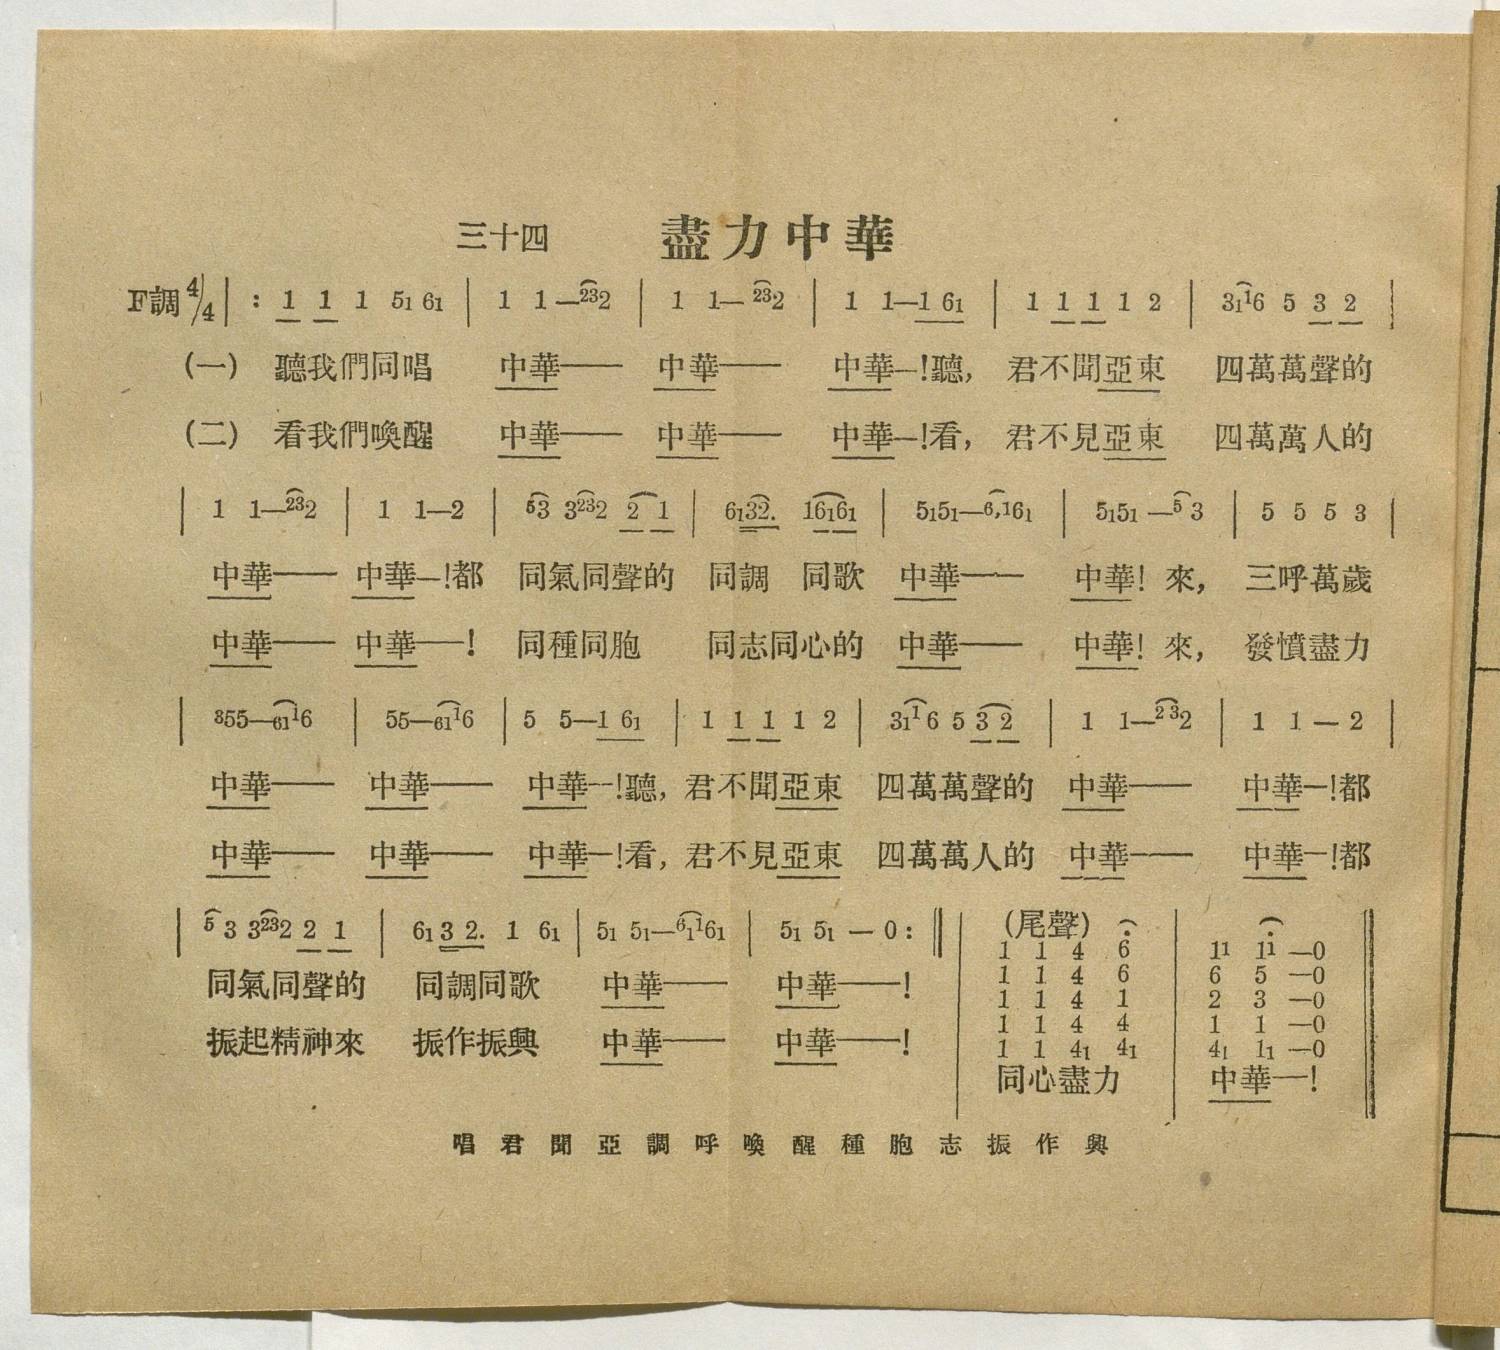 三十四 盡力中華
F調 4/4 |: 1 1 1 5₁ 6₁ | 1 1—232 | 1 1—232 | 1 1—1 6₁ | 1 1 1 1 2 | 3₁¹6 5 3 2 |
(一) 聽我們同唱 中華—— 中華—— 中華—!聽, 君不聞亞東 四萬萬聲的
(二) 看我們喚醒 中華—— 中華—— 中華—!看, 君不見亞東 四萬萬人的
| 1 1—232 | 1 1—2 | 53 3232 2 1 | 6₁32. 16₁6₁ | 5₁5₁—6,¹6₁ | 5₁5₁—5 3 | 5 5 5 3 |
中華—— 中華—!都 同氣同聲的 同調 同歌 中華—— 中華! 來, 三呼萬歲
中華—— 中華——! 同種同胞 同志同心的 中華—— 中華! 來, 發憤盡力
| 355—6₁¹6 | 55—6₁¹6 | 5 5—1 6₁ | 1 1 1 1 2 | 3₁¹6 5 3 2 | 1 1—232 | 1 1—2 |
中華—— 中華—— 中華—!聽, 君不聞亞東 四萬萬聲的 中華—— 中華—!都
中華—— 中華—— 中華—!看, 君不見亞東 四萬萬人的 中華—— 中華—!都
| 5 3 3232 2 1 | 6₁3 2. 1 6₁ | 5₁ 5₁—6₁¹6₁ | 5₁ 5₁—0 :||
同氣同聲的 同調同歌 中華—— 中華——!
振起精神來 振作振興 中華—— 中華——!
(尾聲)
1 1 4 6 | 1¹ 1¹ —0
1 1 4 6 | 6 5 —0
1 1 4 1 | 2 3 —0
1 1 4 4 | 1 1 —0
1 1 4₁ 4₁ | 4₁ 1₁ —0
同心盡力 中華—!
唱君聞亞調呼喚醒種胞志振作興